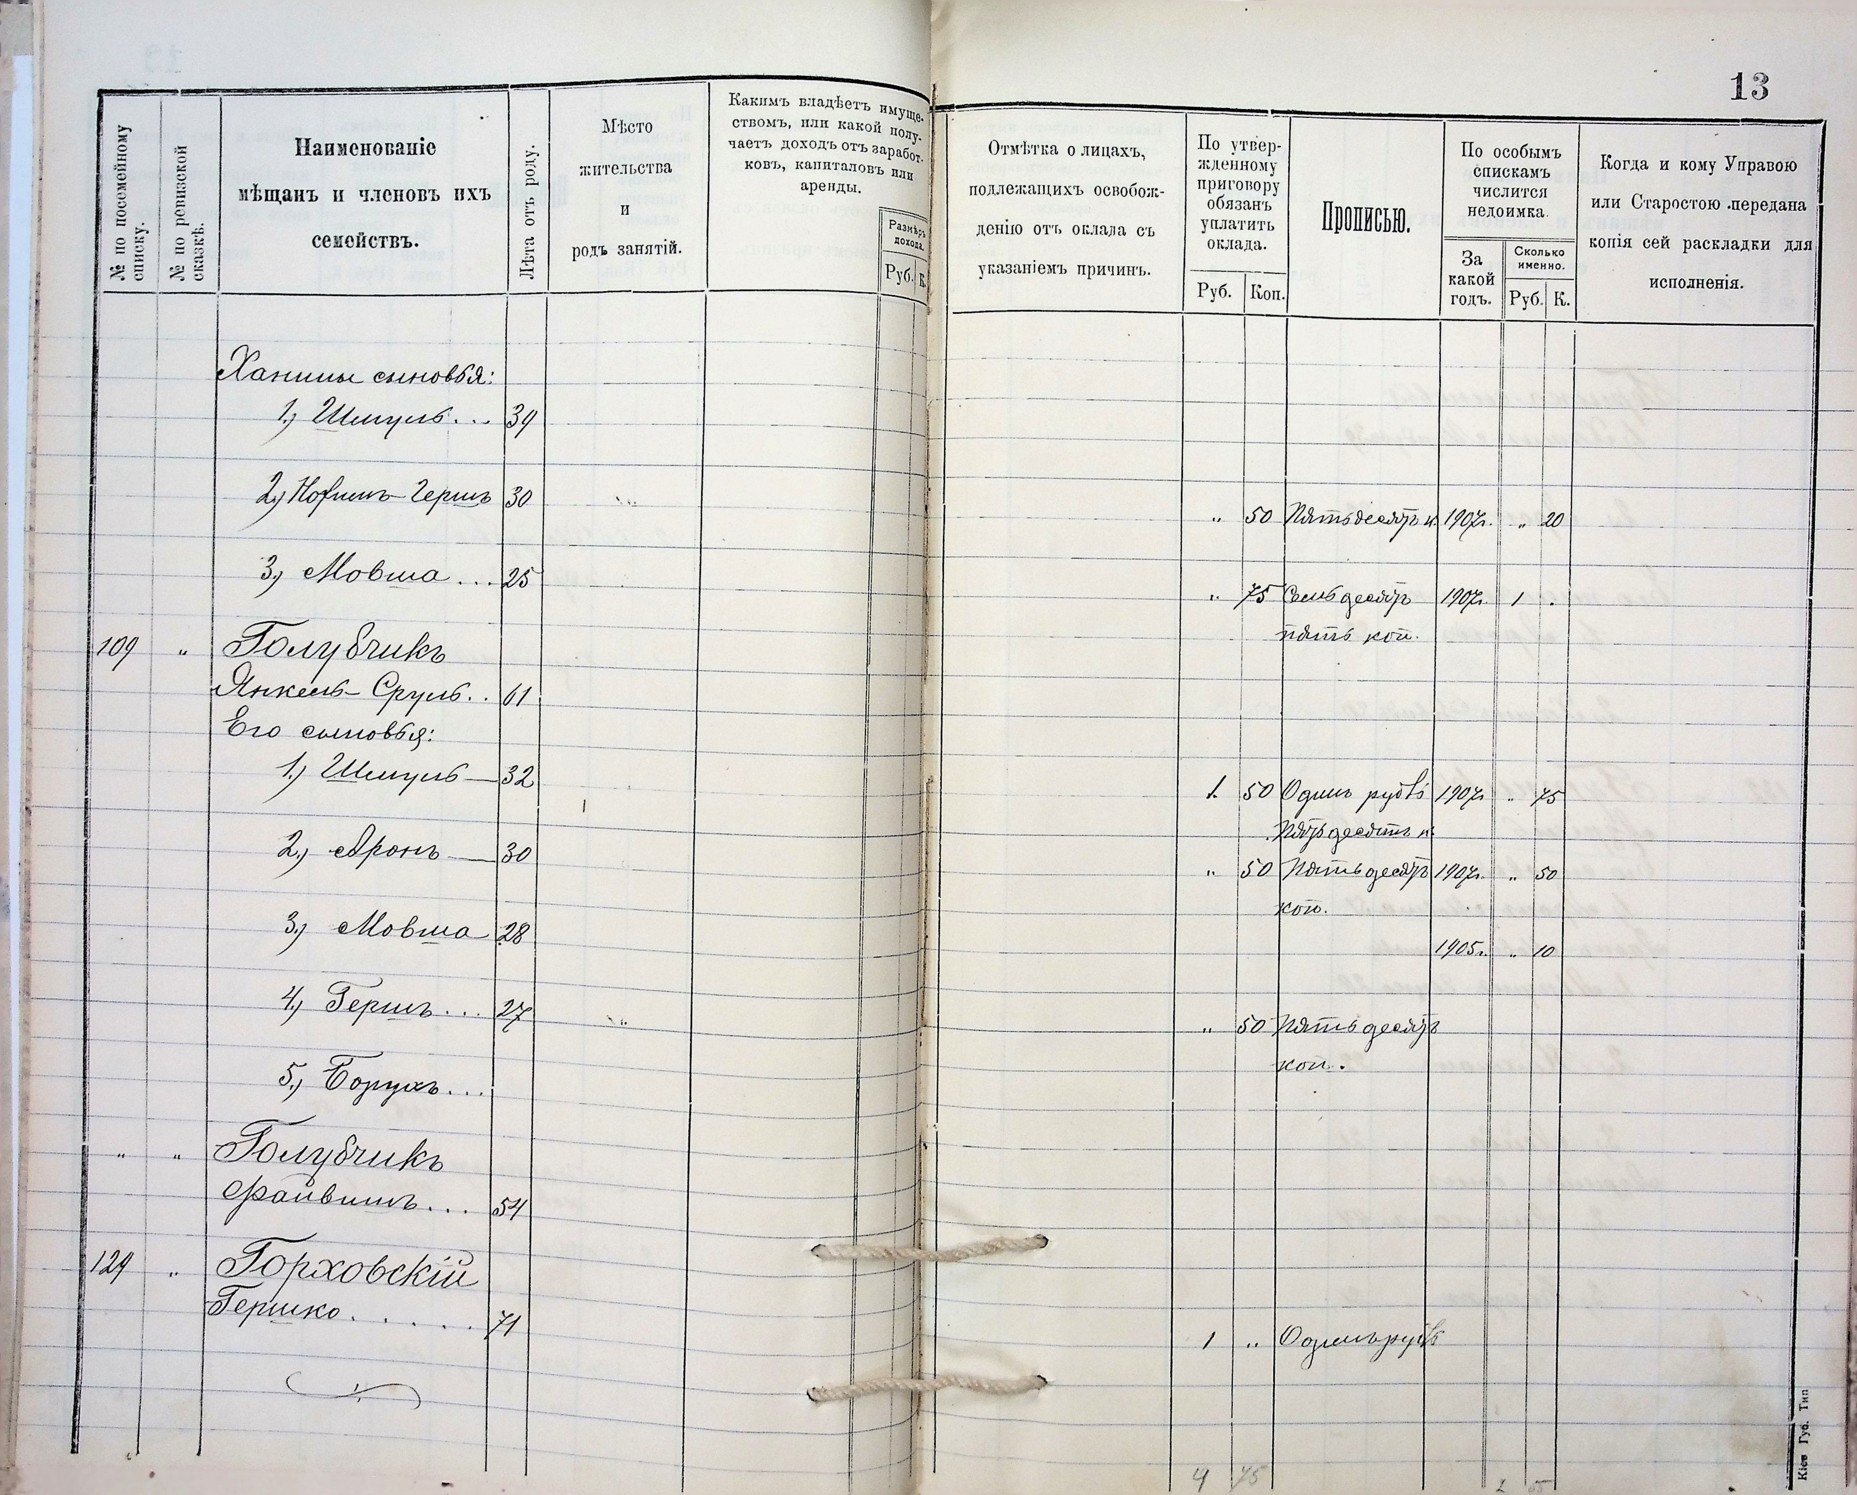 13
№ по посемейному списку.
№ по ревизской сказкѣ.
Наименованіе
мѣщанъ и членовъ ихъ
семействъ.
Лѣта отъ роду.
Мѣсто
жительства
и
родъ занятій.
Какимъ владѣетъ имуще-
ствомъ, или какой полу-
чаетъ доходъ отъ заработ-
ковъ, капиталовъ или
аренды.
Размѣръ
дохода.
Руб. К.
Отмѣтка о лицахъ,
подлежащихъ освобож-
денію отъ оклада съ
указаніемъ причинъ.
По утвер-
жденному
приговору
обязанъ
уплатить
оклада.
Руб. Коп.
Прописью.
По особымъ
спискамъ
числится
недоимка.
За
какой
годъ.
Сколько
именно.
Руб. К.
Когда и кому Управою
или Старостою передана
копія сей раскладки для
исполненія.
сыновья:
1.) Шмуль... 39
2.) Гершъ 30 " 50 Пятьдесятъ к. 1907г. " 20
3.) Мовша... 25 " 75 Семьдесятъ 1907г. 1 .
пять коп.
109 " Голубчикъ
Янкель-Сруль.. 61
Его сыновья:
1.) Шмуль— 32 1. 50 Одинъ рубль 1907г. " 75
Пятьдесятъ к.
2.) Аронъ— 30 " 50 Пятьдесятъ 1907г. " 50
коп.
3.) Мовша 28 1905г. " 10
4.) Гершъ... 27 " 50 Пятьдесятъ
коп.
5.) Борухъ...
" " Голубчикъ
Файвишъ... 54
129 " Горховскій
Гершко...... 71 1 " Одинъ рубль
4 75 2 55
Кіев Губ. Тип